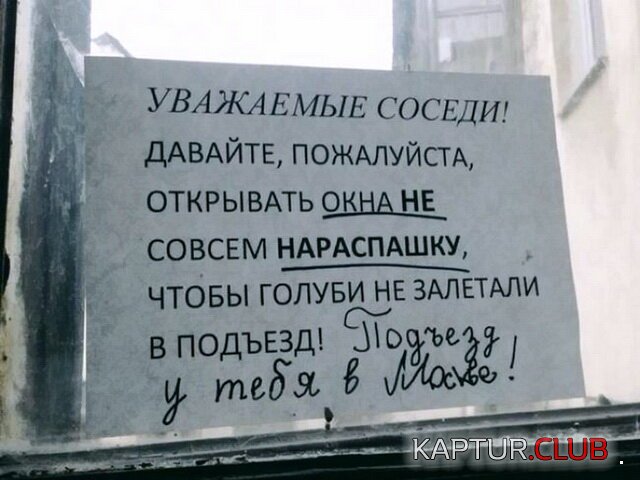 УВАЖАЕМЫЕ СОСЕДИ!
ДАВАЙТЕ, ПОЖАЛУЙСТА,
ОТКРЫВАТЬ ОКНА НЕ
СОВСЕМ НАРАСПАШКУ,
ЧТОБЫ ГОЛУБИ НЕ ЗАЛЕТАЛИ
В ПОДЪЕЗД! Подъезд
у тебя в Москве!
KAPTUR.CLUB